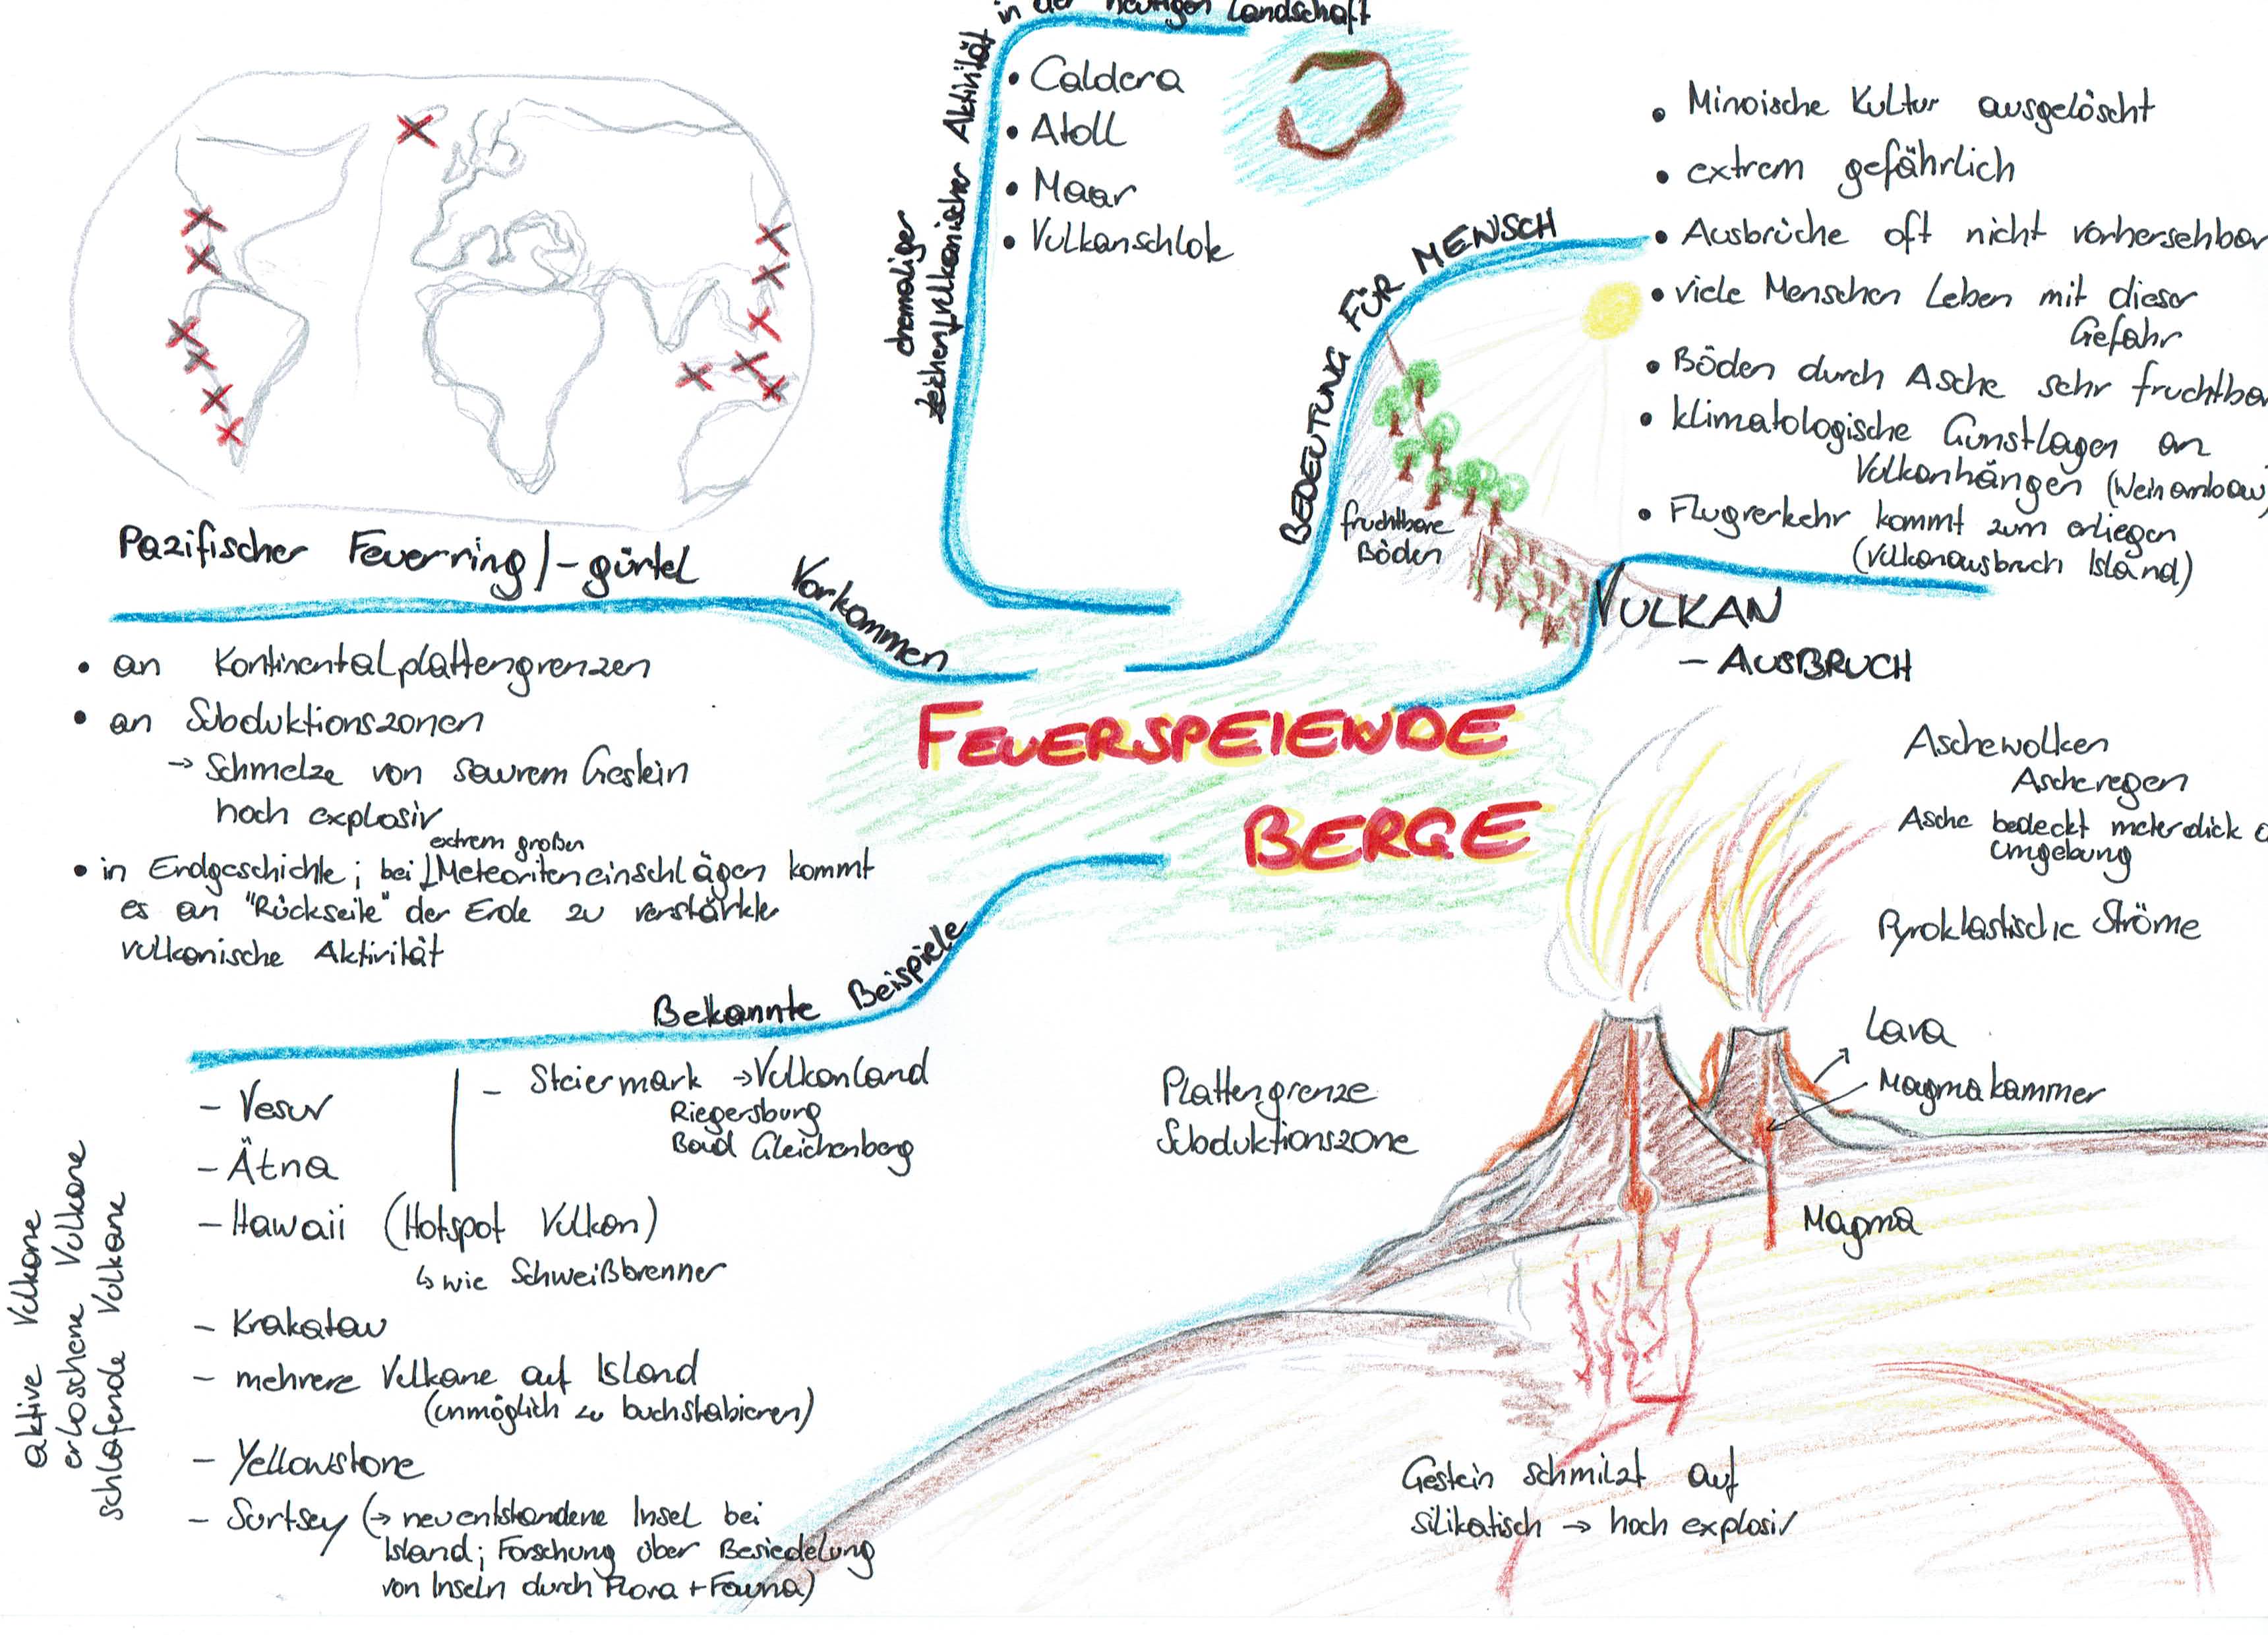 in der heutigen Landschaft
Zeichen ehemaliger vulkanischer Aktivität
• Caldera
• Atoll
• Maar
• Vulkanschlote
BEDEUTUNG FÜR MENSCH
• Minoische Kultur ausgelöscht
• extrem gefährlich
• Ausbrüche oft nicht vorhersehbar
• viele Menschen Leben mit dieser
Gefahr
• Böden durch Asche sehr fruchtbar
• klimatologische Gunstlagen an
Vulkanhängen (Weinanbau)
• Flugverkehr kommt zum erliegen
(Vulkanausbruch Island)
fruchtbare
Böden
Pazifischer Feuerring/-gürtel
Vorkommen
• an Kontinentalplattengrenzen
• an Subduktionszonen
→ Schmelze von saurem Gestein
hoch explosiv
• in Erdgeschichte; bei extrem großen Meteoriteneinschlägen kommt
es an "Rückseite" der Erde zu verstärkte
vulkanische Aktivität
FEUERSPEIENDE
BERGE
VULKAN
- AUSBRUCH
Aschewolken
Ascheregen
Asche bedeckt meterdick
Umgebung
Pyroklastische Ströme
Lava
Magmakammer
Magma
Plattengrenze
Subduktionszone
Gestein schmilzt auf
silikatisch → hoch explosiv
Bekannte Beispiele
- Vesuv
- Ätna
- Hawaii (Hotspot Vulkan)
↳ wie Schweißbrenner
- Krakatau
- mehrere Vulkane auf Island
(unmöglich zu buchstabieren)
- Yellowstone
- Surtsey (→ neuentstandene Insel bei
Island; Forschung über Besiedelung
von Inseln durch Flora + Fauna)
- Steiermark → Vulkanland
Riegersburg
Bad Gleichenberg
aktive Vulkane
erloschene Vulkane
schlafende Vulkane